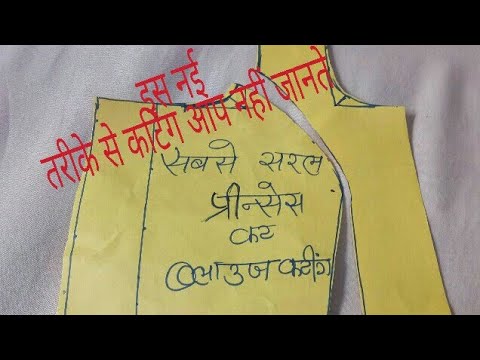 इस नई
तरीके से कटिंग आप नहीं जानते
सबसे सरल
प्रीन्सेस
कट
ब्लाउज कटींग